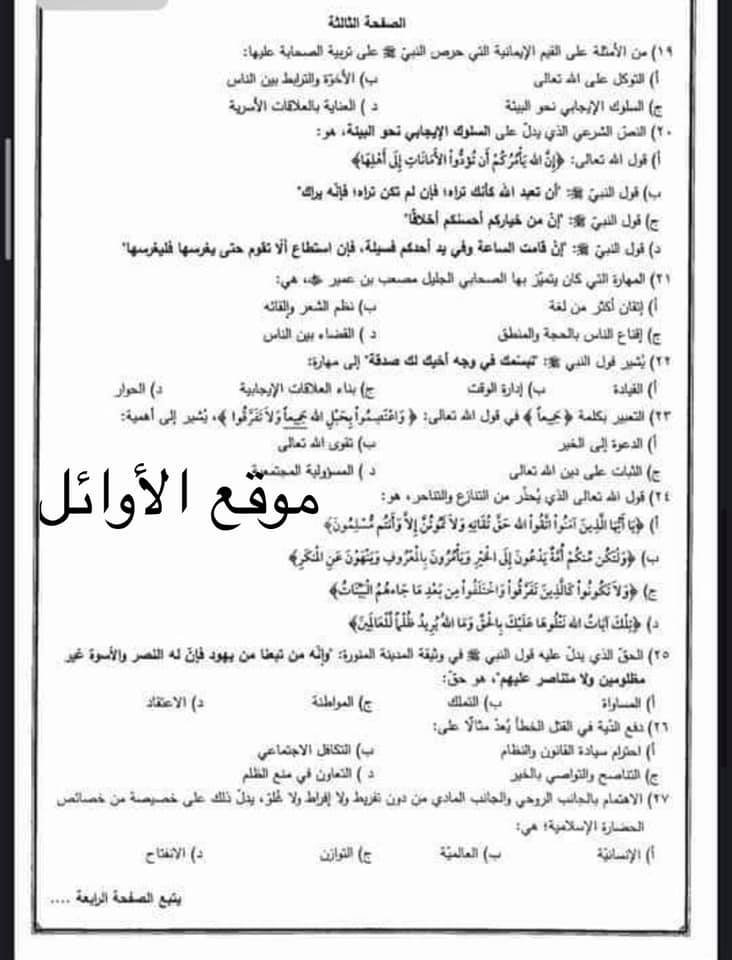 الصفحة الثالثة
١٩) من الأمثلة على القيم الإيمانية التي حرص النبيّ ﷺ على تربية الصحابة عليها:
أ) التوكل على الله تعالى ب) الأخوّة والترابط بين الناس
ج) السلوك الإيجابي نحو البيئة د ) العناية بالعلاقات الأسرية
٢٠) النصّ الشرعي الذي يدلّ على السلوك الإيجابي نحو البيئة، هو:
أ) قول الله تعالى: ﴿إِنَّ الله يَأْمُرُكُمْ أَن تُؤدُّواْ الأَمَانَاتِ إِلَى أَهْلِهَا﴾
ب) قول النبيّ ﷺ: "أن تعبد الله كأنك تراه؛ فإن لم تكن تراه؛ فإنّه يراك"
ج) قول النبيّ ﷺ: "إنّ من خياركم أحسنكم أخلاقًا"
د) قول النبيّ ﷺ: "إنْ قامت الساعة وفي يد أحدكم فسيلة، فإن استطاع ألّا تقوم حتى يغرسها فليغرسها"
٢١) المهارة التي كان يتميّز بها الصحابي الجليل مصعب بن عمير ﷺ، هي:
أ) إتقان أكثر من لغة ب) نظم الشعر وإلقائه
ج) إقناع الناس بالحجة والمنطق د ) القضاء بين الناس
٢٢) يُشير قول النبيّ ﷺ: "تبسمك في وجه أخيك لك صدقة" إلى مهارة:
أ) القيادة ب) إدارة الوقت ج) بناء العلاقات الإيجابية د) الحوار
٢٣) التعبير بكلمة ﴿جَمِيعاً﴾ في قول الله تعالى: ﴿وَاعْتَصِمُواْ بِحَبْلِ الله جَمِيعاً وَلاَ تَفَرَّقُوا﴾، يُشير إلى أهمية:
أ) الدعوة إلى الخير ب) تقوى الله تعالى
ج) الثبات على دين الله تعالى د ) المسؤولية المجتمعية
موقع الأوائل
٢٤) قول الله تعالى الذي يُحذّر من التنازع والتناحر، هو:
أ) ﴿يَا أَيُّهَا الَّذِينَ آمَنُواْ اتَّقُواْ الله حَقَّ تُقَاتِهِ وَلاَ تَمُوتُنَّ إِلاَّ وَأَنتُم مُّسْلِمُونَ﴾
ب) ﴿وَلْتَكُن مِّنكُمْ أُمَّةٌ يَدْعُونَ إِلَى الْخَيْرِ وَيَأْمُرُونَ بِالْمَعْرُوفِ وَيَنْهَوْنَ عَنِ الْمُنكَرِ﴾
ج) ﴿وَلاَ تَكُونُواْ كَالَّذِينَ تَفَرَّقُواْ وَاخْتَلَفُواْ مِن بَعْدِ مَا جَاءهُمُ الْبَيِّنَاتُ﴾
د) ﴿تِلْكَ آيَاتُ الله نَتْلُوهَا عَلَيْكَ بِالْحَقِّ وَمَا اللهُ يُرِيدُ ظُلْماً لِّلْعَالَمِينَ﴾
٢٥) الحقّ الذي يدلّ عليه قول النبيّ ﷺ في وثيقة المدينة المنورة: "وإنّه من تبعنا من يهود فإنّ له النصر والأسوة غير
مظلومين ولا متناصر عليهم"، هو حقّ:
أ) المساواة ب) التملك ج) المواطنة د) الاعتقاد
٢٦) دفع الدّية في القتل الخطأ يُعدّ مثالًا على:
أ) احترام سيادة القانون والنظام ب) التكافل الاجتماعي
ج) التناصح والتواصي بالخير د ) التعاون في منع الظلم
٢٧) الاهتمام بالجانب الروحي والجانب المادي من دون تفريط ولا إفراط ولا غُلوّ، يدلّ ذلك على خصيصة من خصائص
الحضارة الإسلامية؛ هي:
أ) الإنسانيّة ب) العالميّة ج) التوازن د) الانفتاح
يتبع الصفحة الرابعة ....